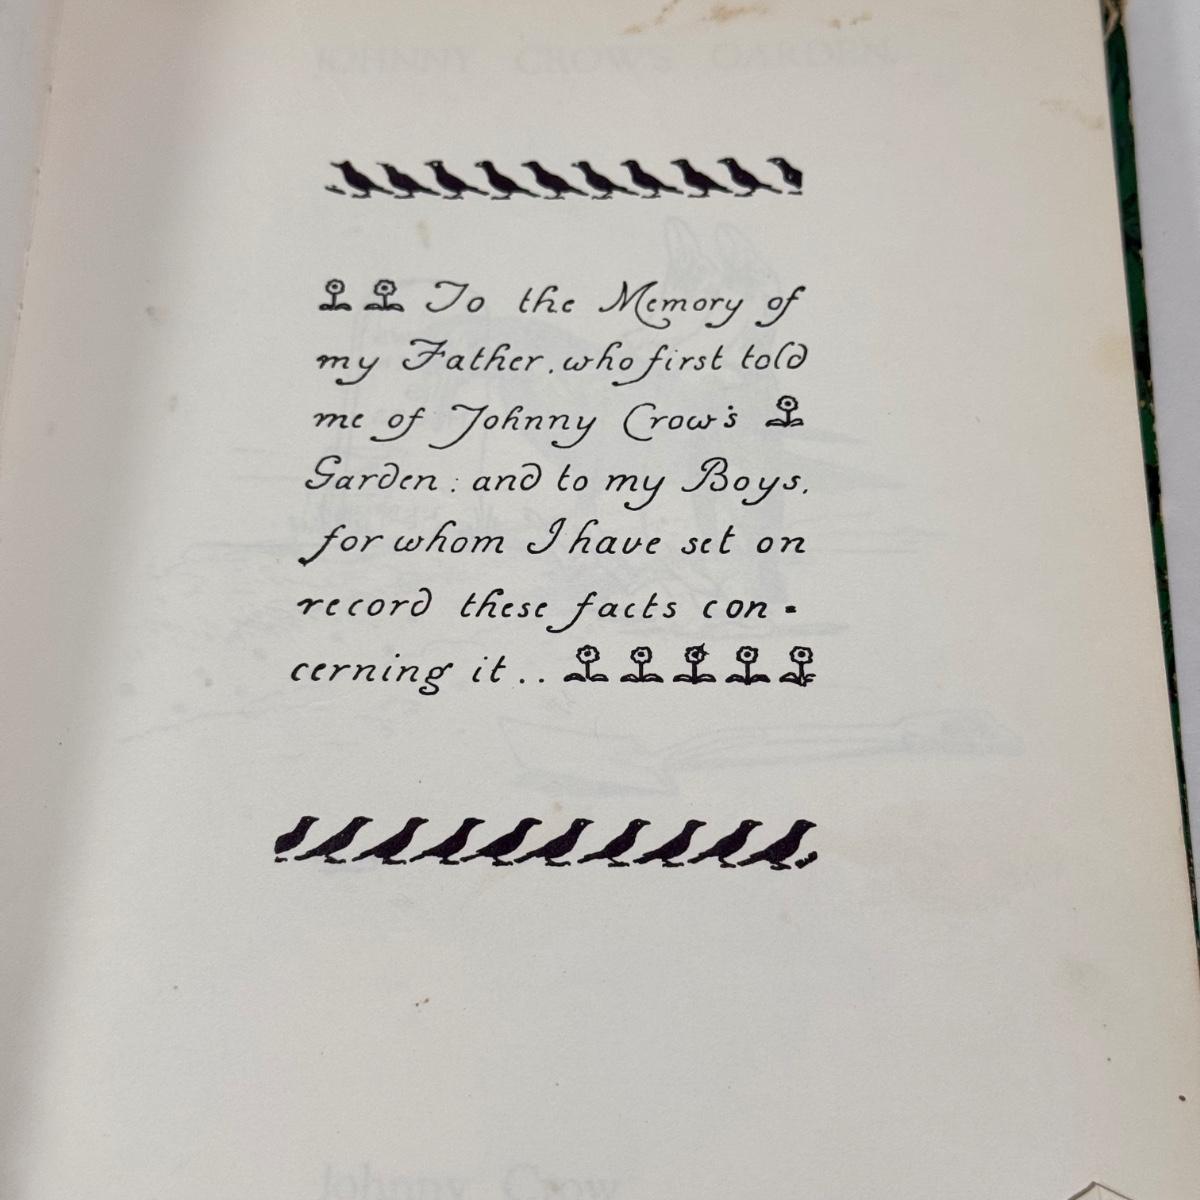 JOHNNY CROW'S GARDEN
To the Memory of
my Father, who first told
me of Johnny Crow's
Garden : and to my Boys,
for whom I have set on
record these facts con-
cerning it . .
Johnny Crow